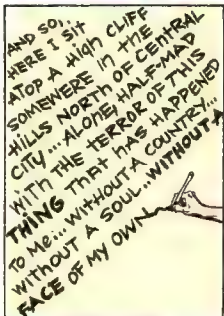 AND SO,..
HERE I SIT
ATOP A HIGH CLIFF
SOMEWERE IN THE
HILLS NORTH OF CENTRAL
CITY... ALONE, HALF-MAD
WITH THE TERROR OF THIS
THING THAT HAS HAPPENED
TO ME... WITHOUT A COUNTRY...
WITHOUT A SOUL.. WITHOUT A
FACE OF MY OWN